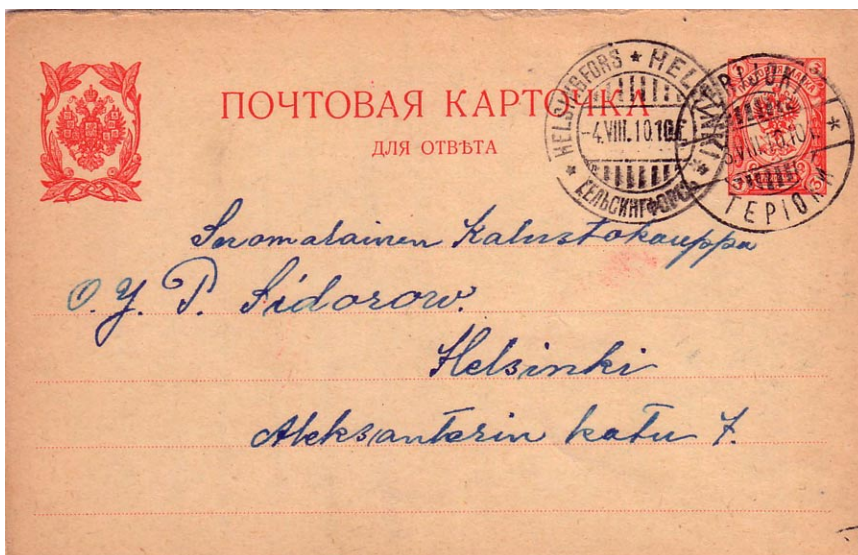 ПОЧТОВАЯ КАРТОЧКА
ДЛЯ ОТВѢТА
HELSINGFORS * HELSINKI *
-4.VIII.10
ГЕЛЬСИНГФОРСЪ *
TERIJOKI *
VIII.10
ТЕРІОКИ
3 3
Suomalainen Kalustokauppa
O. Y. P. Sidorow.
Helsinki
Aleksanterin katu 7.